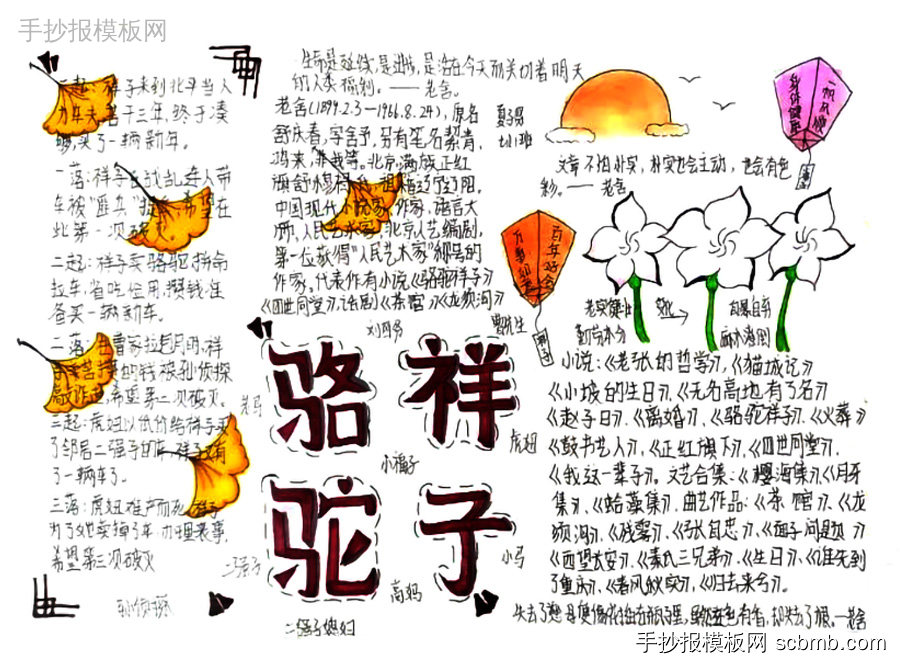 手抄报模板网
一起：祥子来到北平当人
力车夫,苦干三年,终于凑
够,买了一辆新车。
一落：祥子在战乱连人带
车被"匪兵"
希望在
此第一次破灭。
二起：祥子卖骆驼,拚命
拉车,省吃俭用,攒钱准
备买一辆新车。
二落：在曹家拉包月时,祥
的钱被孙侦探
希望第二次破灭。
三起：虎妞以低价给祥子买
了邻居二强子的车,祥子又有
了一辆车了。
三落：虎妞难产而死,祥子
为了她卖掉了车,办理丧事,
希望第三次破灭
孙侦探
生命是延续,是进步,是活在今天而关切着明天
的人类福利。——老舍。
老舍(1899.2.3—1966.8.24),原名
舒庆春,字舍予,另有笔名絜青、
鸿来、非我等。北京,满族正红
旗
中国现代小说家、作家,语言大
师,人民艺术家,北京人艺编剧,
第一位获得"人民艺术家"称号的
作家,代表作有小说《骆驼祥子》
《四世同堂》,话剧《茶馆》《龙须沟》
夏子男
一帆风顺
身体健康
文章不怕朴实,朴实也会生动,也会有色
彩。——老舍
百年好合
万事如意
祥子
曹先生
老实健壮
勤劳本分
自暴自弃
麻木潦倒
刘四爷
骆 祥
驼 子
老马
虎妞
小福子
小马
二强子
高妈
二强子媳妇
小说:《老张的哲学》,《猫城记》
《小坡的生日》,《无名高地有了名》
《赵子曰》,《离婚》,《骆驼祥子》,《火葬》
《鼓书艺人》,《正红旗下》,《四世同堂》,
《我这一辈子》。文艺合集:《樱海集》,《月牙
集》,《蛤藻集》,曲艺作品:《茶馆》,《龙
须沟》,《残雾》,《张自忠》,《面子问题》
《西望长安》,《秦氏三兄弟》,《生日》,《谁先到
了重庆》,《春风
实》,《归去来兮》。
失去了慈母便像花插在瓶子里,虽然还有色有香,却失去了根。—老舍
手抄报模板网 scbmb.com